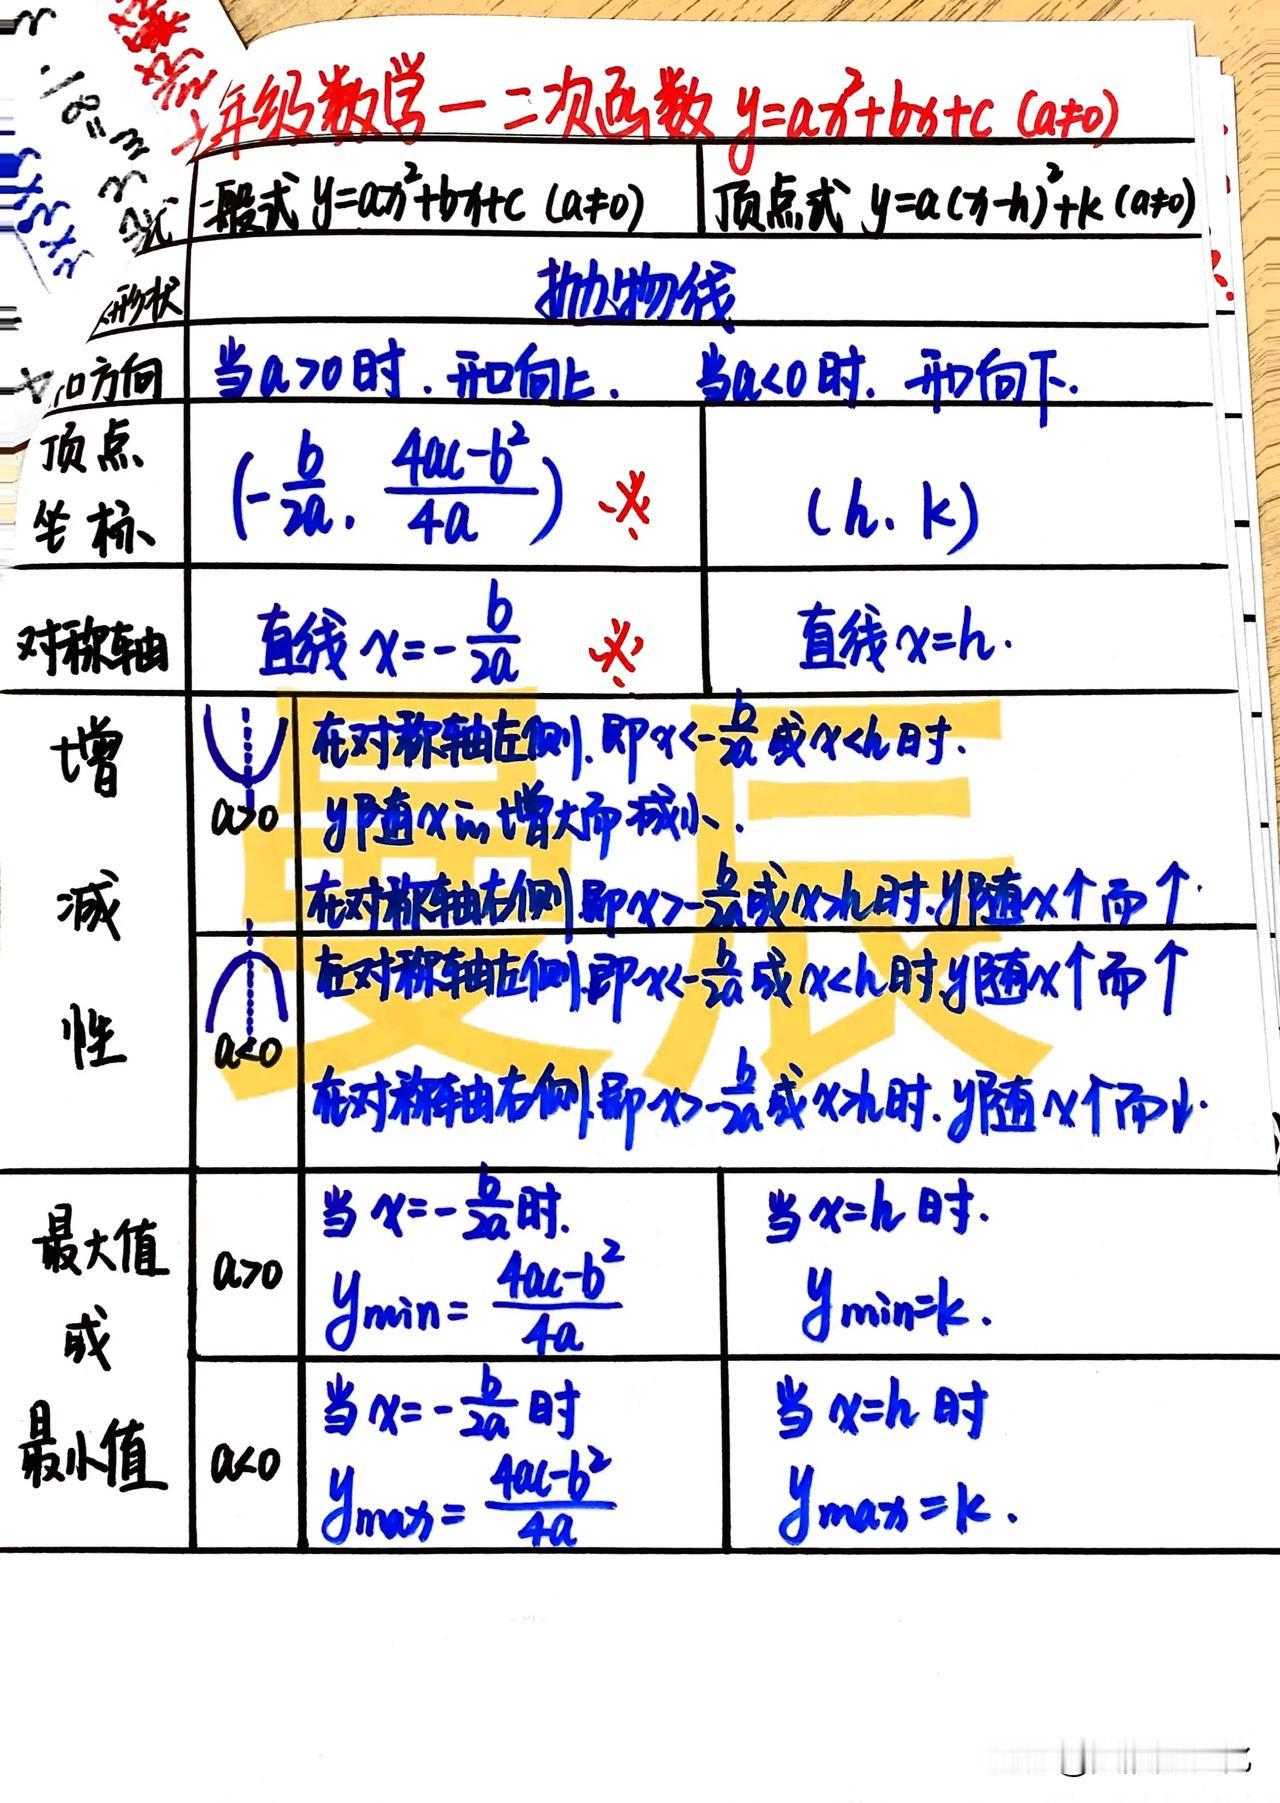 年级数学一二次函数 y=ax²+bx+c (a≠0)
一般式 y=ax²+bx+c (a≠0) 顶点式 y=a(x-h)²+k (a≠0)
形状 抛物线
口方向 当a>0时.开口向上. 当a<0时.开口向下.
顶点坐标 (-b/2a. (4ac-b²)/4a) ※ (h.k)
对称轴 直线x=-b/2a ※ 直线x=h.
增减性
a>0 在对称轴左侧.即x<-b/2a或x<h时.
y随x的增大而减小.
在对称轴右侧.即x>-b/2a或x>h时.y随x↑而↑.
a<0 在对称轴左侧.即x<-b/2a或x<h时.y随x↑而↑
在对称轴右侧.即x>-b/2a或x>h时.y随x↑而↓.
最大值或最小值
a>0 当x=-b/2a时. 当x=h时.
ymin=(4ac-b²)/4a ymin=k.
a<0 当x=-b/2a时 当x=h时
ymax=(4ac-b²)/4a ymax=k.
曼辰